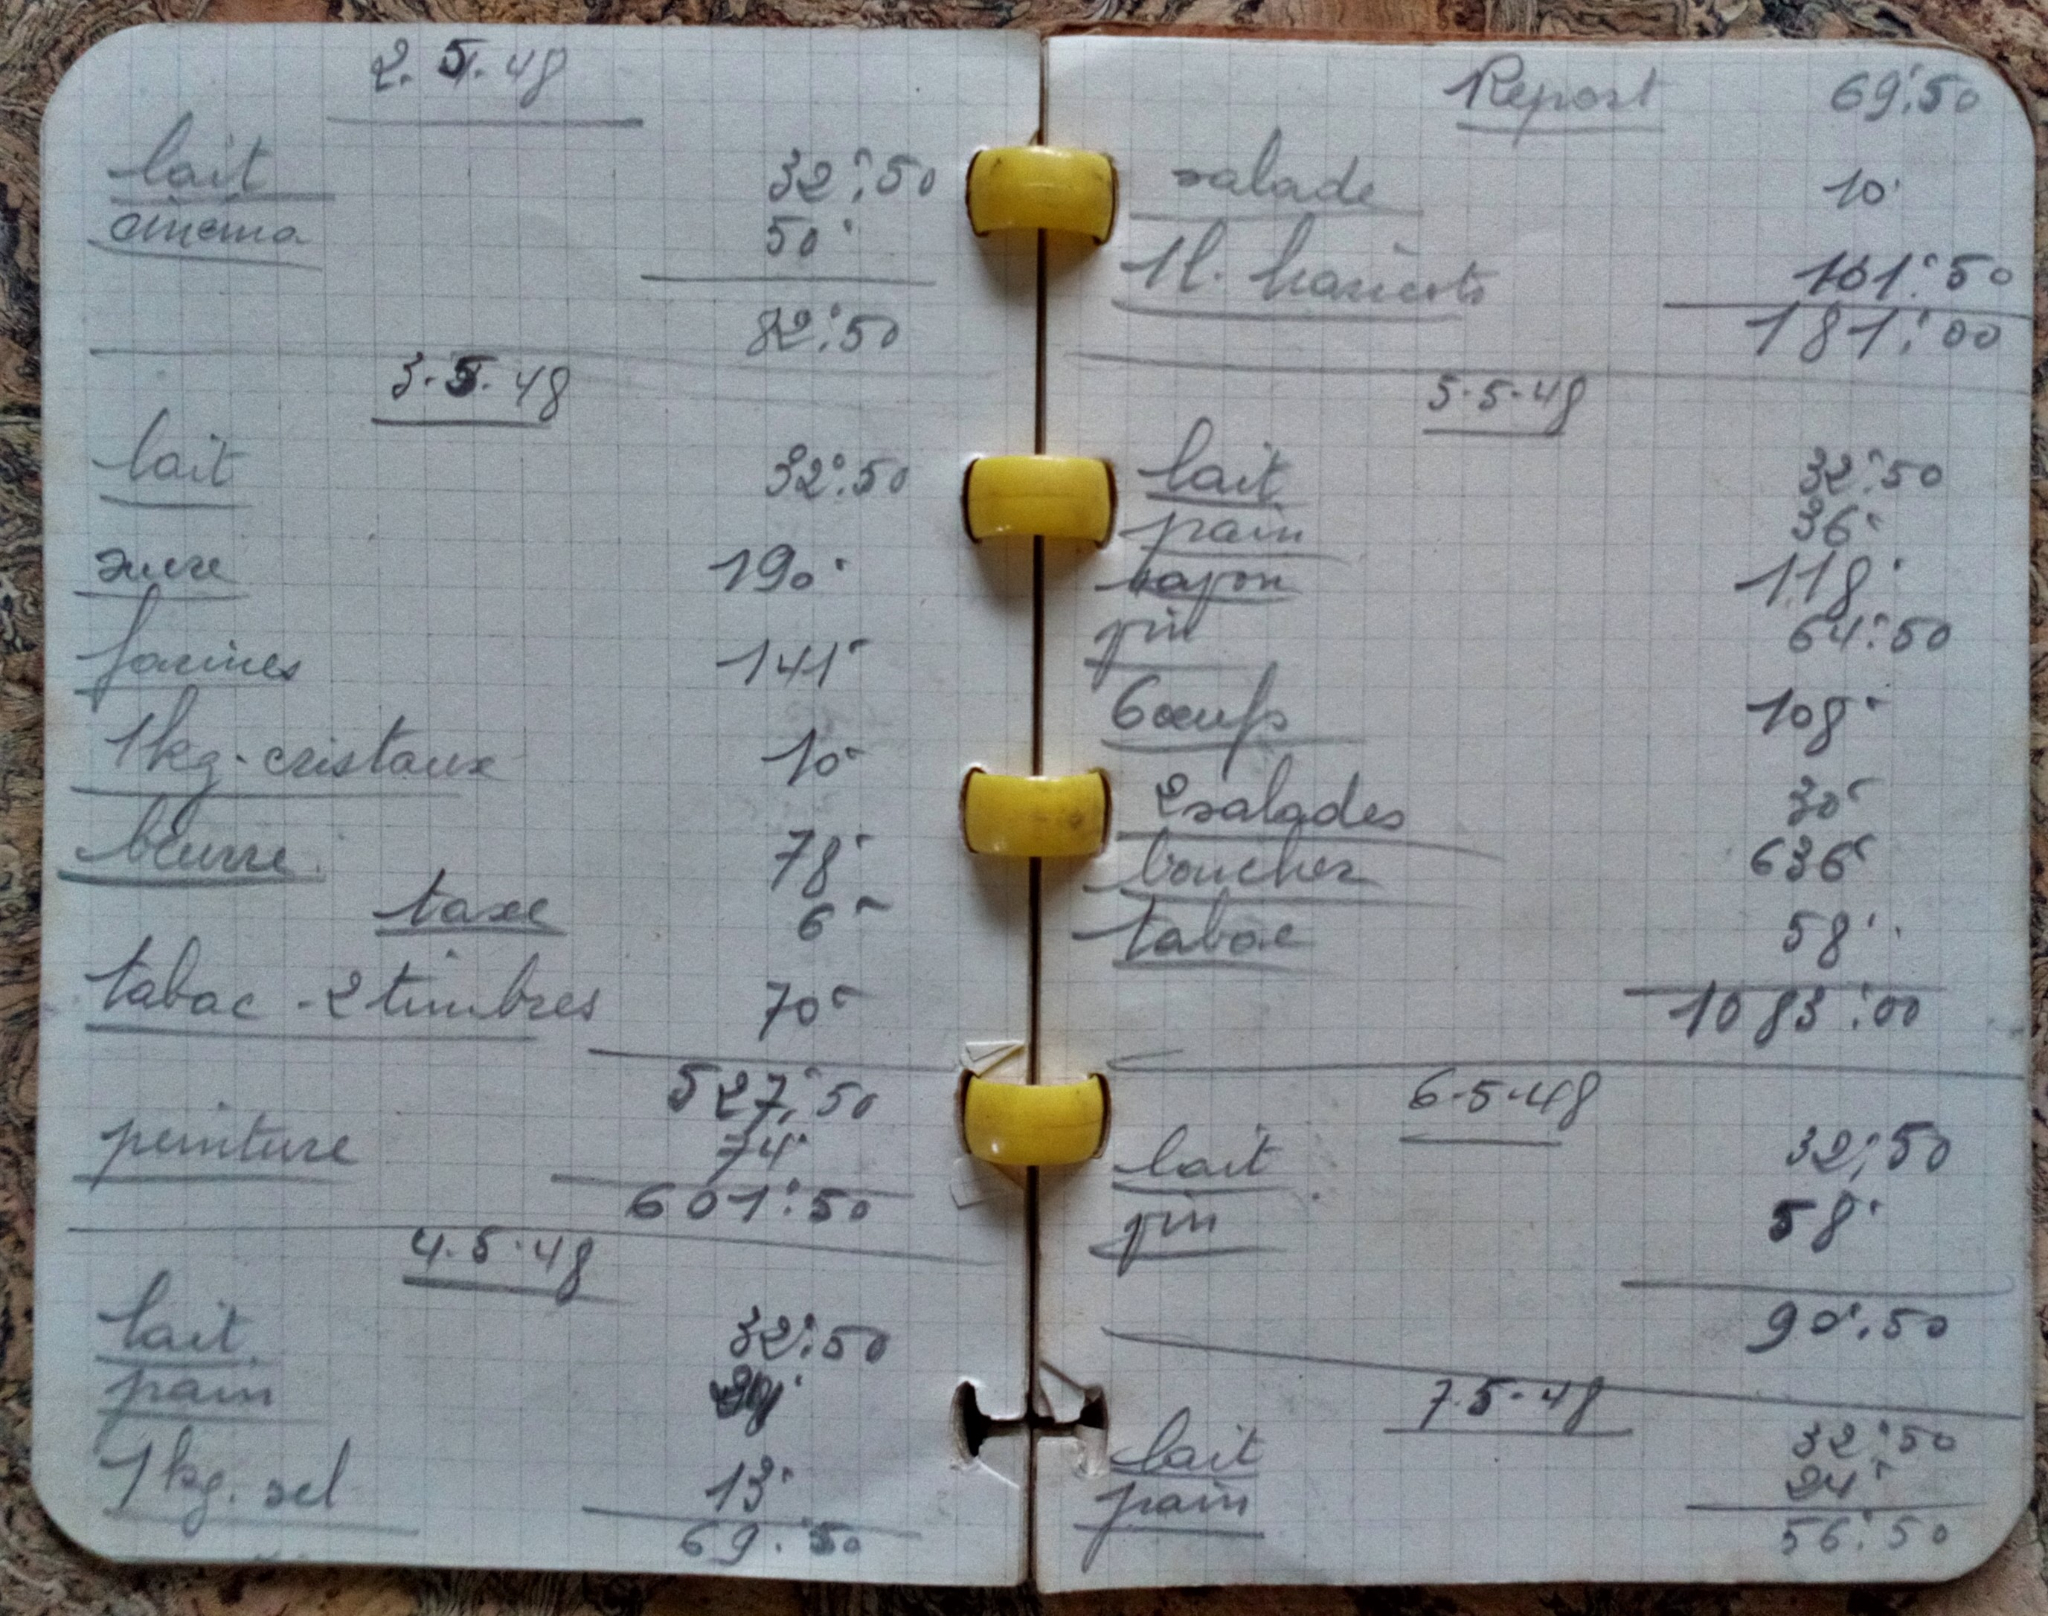 2.5.48
lait 32.50
cinéma 50
82.50
3.5.48
lait 32.50
sucre 190
farines 141
1 kg. cristaux 10
beurre 78
taxe 6
tabac - 2 timbres 70
527.50
peinture 74
601.50
4.5.48
lait 32.50
pain
1 kg. sel 13
69.50
Report 69.50
salade 10
1 l. haricots 101.50
181.00
5.5.48
lait 32.50
pain 36
118
64.50
6 œufs 108
2 salades 30
boucher 636
tabac 58
1083.00
6.5.48
lait 32.50
58
90.50
7.5.48
lait 32.50
pain 24
56.50